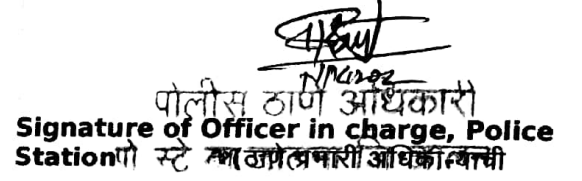 पोलीस ठाणे अधिकारी
Signature of Officer in charge, Police
Station पो स्टे ठाणे प्रभारी अधिकाऱ्याची